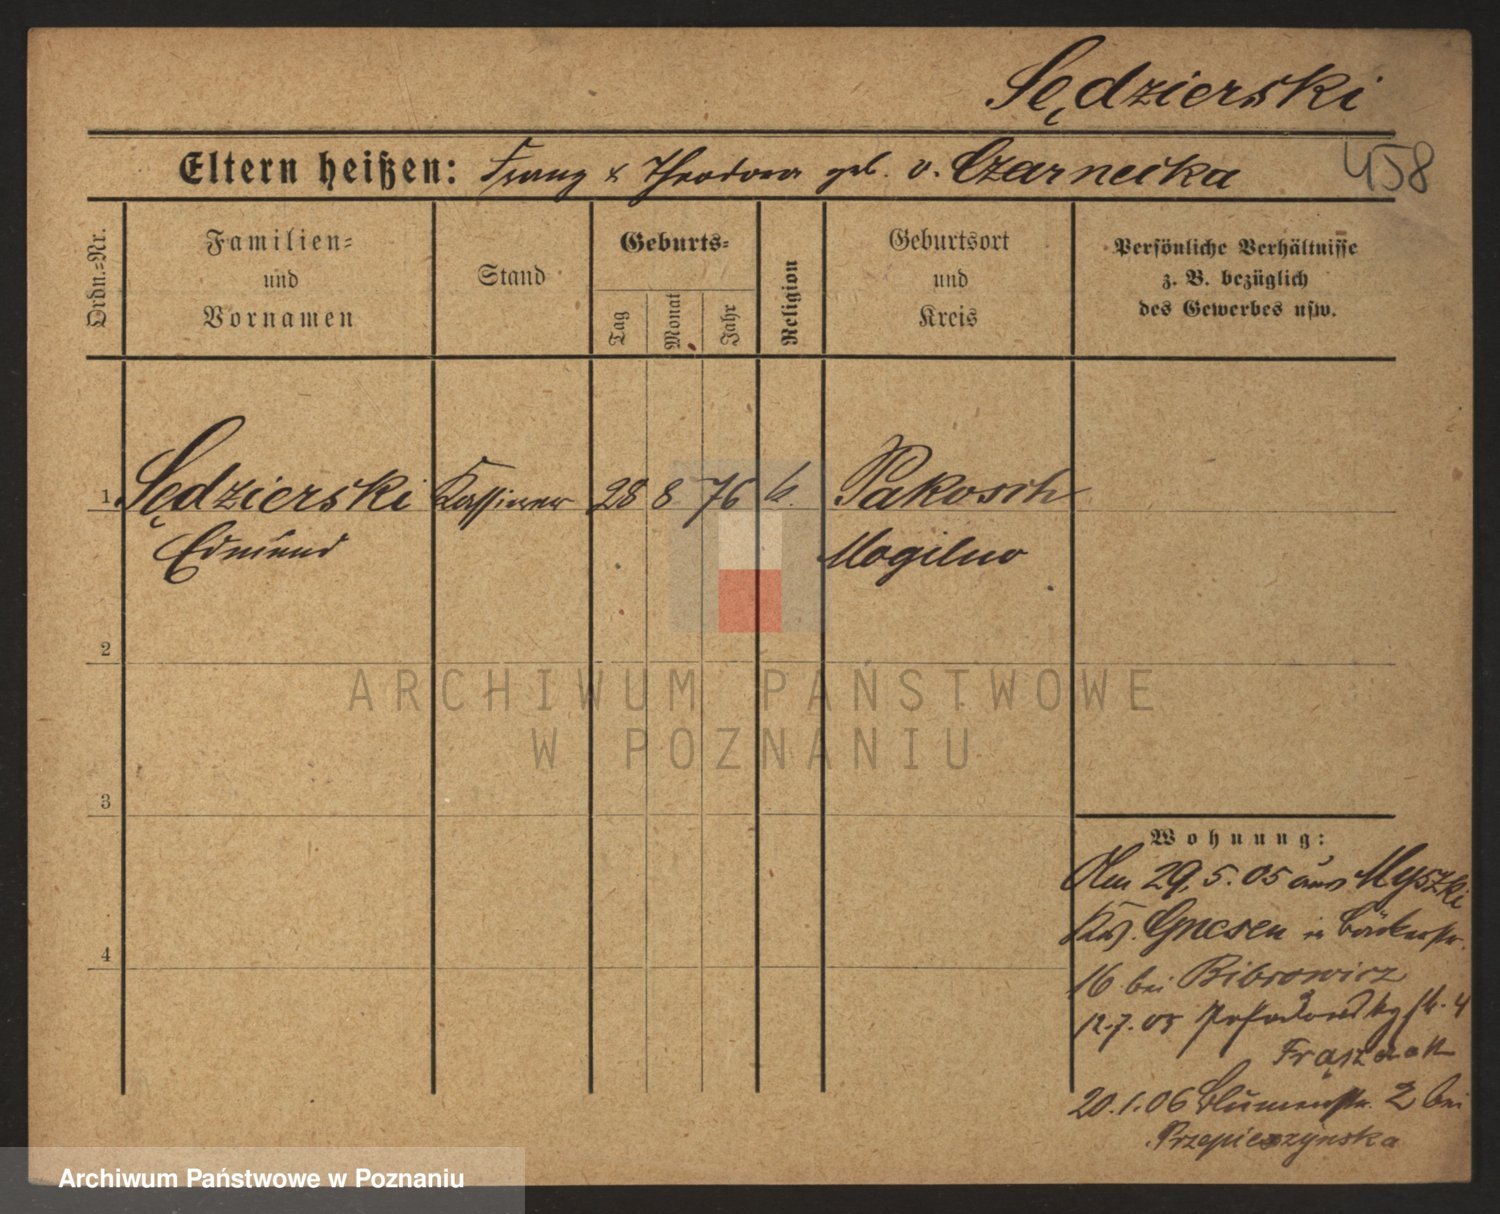 Sędzierski
458
Eltern heißen: Franz & Theodora geb. v. Czarnecka
Ordn.=Nr.
Familien=
und
Vornamen
Stand
Geburts=
Tag
Monat
Jahr
Religion
Geburtsort
und
Kreis
Persönliche Verhältnisse
z. B. bezüglich
des Gewerbes usw.
1 Sędzierski Kassierer 28 8 76 k. Pakosch
Edmund Mogilno
2
ARCHIWUM PAŃSTWOWE
W POZNANIU
3
Wohnung:
Am 29.5.05 aus Myszki
Krs. Gnesen in Bäckerstr.
16 bei Bibrowicz
12.7.05 str. 4
Frąszczak
20.1.06 Blumenstr. 2 bei
Przepieszynska
4
Archiwum Państwowe w Poznaniu